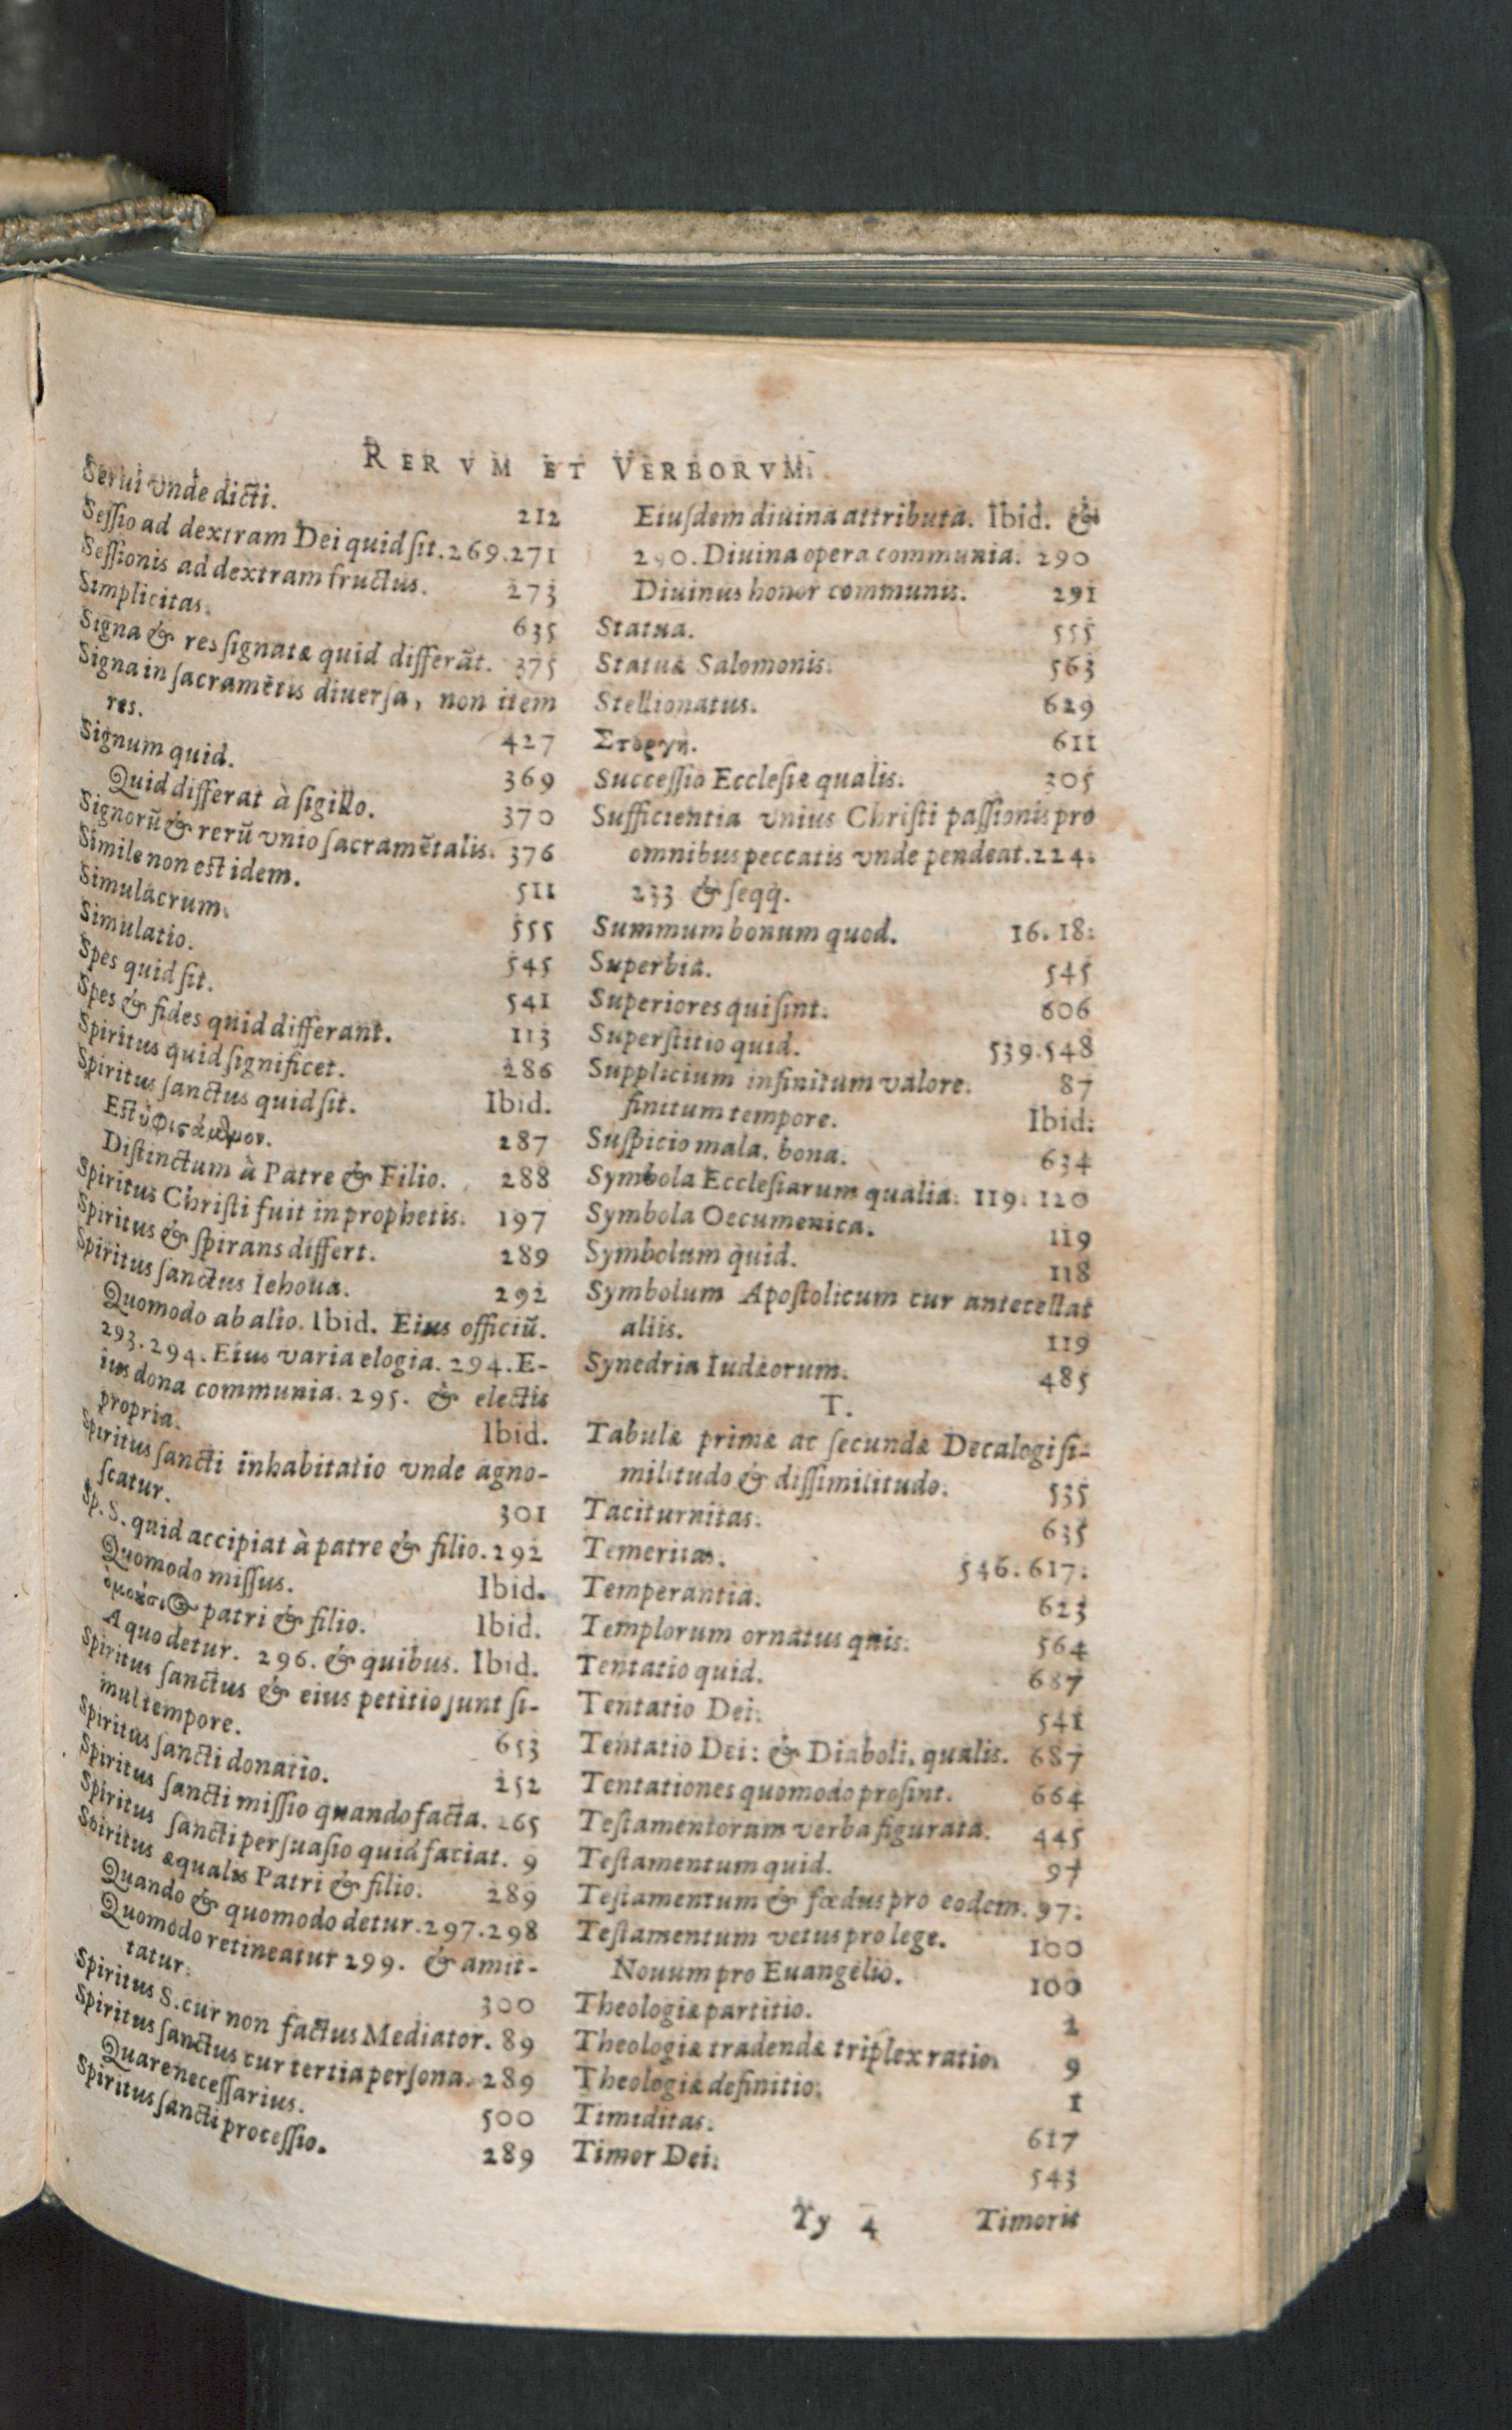 RERVM ET VERBORVM.
Serui vnde dicti. 212
Sessio ad dextram Dei quid sit. 269. 271
Sessionis ad dextram fructus. 273
Simplicitas. 635
Signa & res signatæ quid differãt. 375
Signa in sacramẽtis diuersa, non item
res. 427
Signum quid. 369
Quid differat à sigillo. 370
Signorũ & rerũ vnio sacramẽtalis. 376
Simile non est idem. 511
Simulacrum. 555
Simulatio. 545
Spes quid sit. 541
Spes & fides quid differant. 113
Spiritus quid significet. 286
Spiritus sanctus quid sit. Ibid.
Est ὑφιστάμενον. 287
Distinctum à Patre & Filio. 288
Spiritus Christi fuit in prophetis. 197
Spiritus & spirans differt. 289
Spiritus sanctus Iehoua. 292
Quomodo ab alio. Ibid. Eius officiũ.
293. 294. Eius varia elogia. 294. E-
ius dona communia. 295. & electis
propria. Ibid.
Spiritus sancti inhabitatio vnde agno-
scatur. 301
Sp. S. quid accipiat à patre & filio. 292
Quomodo missus. Ibid.
ὁμοούσιος patri & filio. Ibid.
A quo detur. 296. & quibus. Ibid.
Spiritus sanctus & eius petitio sunt si-
mul tempore. 653
Spiritus sancti donatio. 252
Spiritus sancti missio quando facta. 265
Spiritus sancti persuasio quid faciat. 9
Spiritus æqualis Patri & filio. 289
Quando & quomodo detur. 297. 298
Quomodo retineatur 299. & amit-
tatur. 300
Spiritus S. cur non factus Mediator. 89
Spiritus sanctus cur tertia persona. 289
Quare necessarius. 500
Spiritus sancti processio. 289
Eiusdem diuina attributa. Ibid. &
290. Diuina opera communia. 290
Diuinus honor communis. 291
Statua. 555
Statuæ Salomonis. 563
Stellionatus. 629
Στοργη. 611
Successio Ecclesiæ qualis. 305
Sufficientia vnius Christi passionis pro
omnibus peccatis vnde pendeat. 224.
233 & seqq.
Summum bonum quod. 16. 18.
Superbia. 545
Superiores qui sint. 606
Superstitio quid. 539. 548
Supplicium infinitum valore. 87
finitum tempore. Ibid.
Suspicio mala, bona. 634
Symbola Ecclesiarum qualia. 119. 120
Symbola Oecumenica. 119
Symbolum quid. 118
Symbolum Apostolicum cur antecellat
aliis. 119
Synedria Iudæorum. 485
T.
Tabulæ primæ ac secundæ Decalogi si-
militudo & dissimilitudo. 535
Taciturnitas. 635
Temeritas. 546. 617.
Temperantia. 623
Templorum ornatus quis. 564
Tentatio quid. 687
Tentatio Dei. 541
Tentatio Dei: & Diaboli, qualis. 687
Tentationes quomodo prosint. 664
Testamentorum verba figurata. 445
Testamentum quid. 97
Testamentum & fœdus pro eodem. 97.
Testamentum vetus pro lege. 100
Nouum pro Euangelio. 100
Theologiæ partitio. 2
Theologiæ tradendæ triplex ratio. 9
Theologiæ definitio. 1
Timiditas. 617
Timor Dei. 543
Yy 4 Timoris